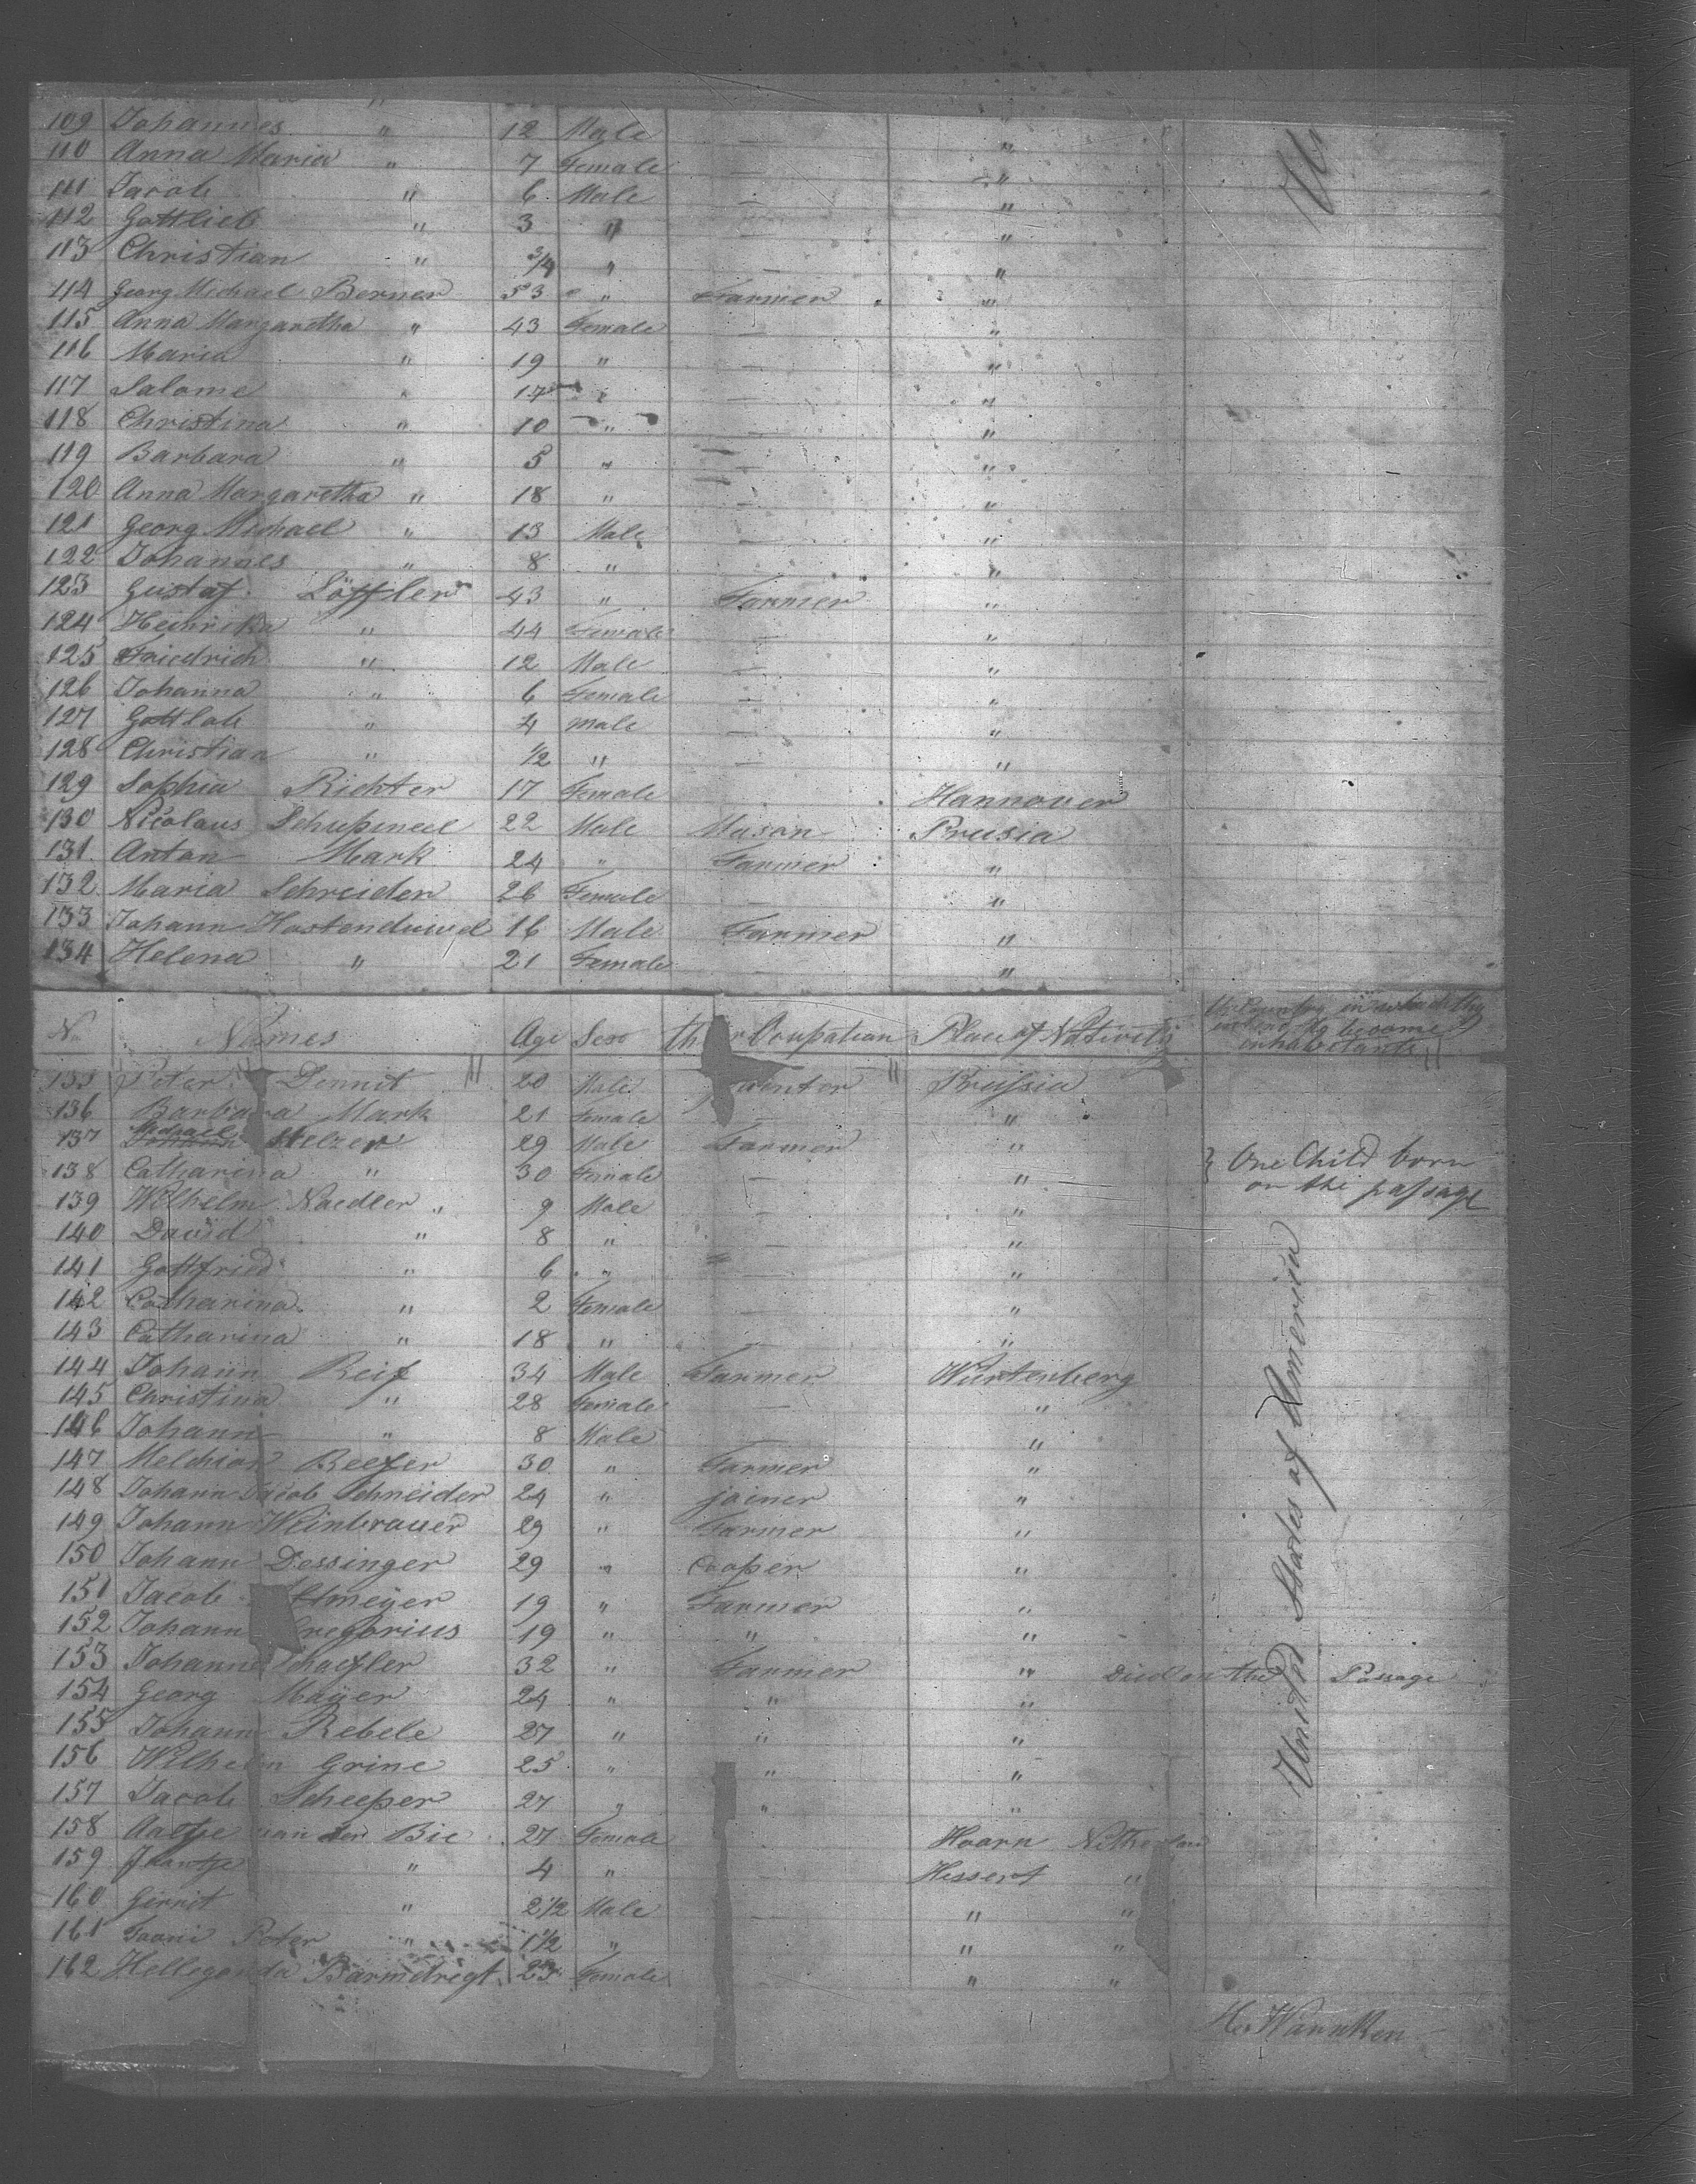 109 Johannes " 12 Male — "
110 Anna Maria " 7 Female — "
111 Jacob " 6 Male — "
112 Gottlieb " 3 " — "
113 Christian " 3/4 " — "
114 Georg Michael Berner 53 " Farmer "
115 Anna Margaretha " 43 Female — "
116 Maria " 19 " — "
117 Salome " 17 " — "
118 Christina " 10 " — "
119 Barbara " 5 " — "
120 Anna Margaretha " 18 " — "
121 Georg Michael " 13 Male — "
122 Johannes " 8 " — "
123 Gustaf Löffler 43 " Farmer "
124 Heinrika " 44 Female — "
125 Friedrich " 12 Male — "
126 Johanna " 6 Female — "
127 Gottlob " 4 Male — "
128 Christian " 1/2 " — "
129 Sophia Richter 17 Female Hannover
130 Nicolaus 22 Male Mason Prusia
131 Anton Mark 24 " Farmer "
132 Maria Schreider 26 Female — "
133 Johann 16 Male Farmer "
134 Helena " 21 Female — "
No Names Age Sex Ocupation Place of Nativity the Country in which they intend to become inhabitants
135 Peter Dennit 20 Male Prussia
136 Barbara Mark 21 Female — "
137 Michael Stelzer 29 Male Farmer "
138 Catharina " 30 Female — " } One Child born
on the passage
139 Wilhelm Naedler " 9 Male — "
140 David " 8 " — "
141 Gottfried " 6 " — "
142 Catharina " 2 Female — "
143 Catharina " 18 " — "
144 Johann Reif 34 Male Farmer Wurtenberg
145 Christina " 28 Female — "
146 Johann " 8 Male — "
147 Melchior 30 " Farmer "
148 Johann Jacob Schneider 24 " joiner "
149 Johann Weinbrauer 29 " Farmer "
150 Johann Dessinger 29 " Cooper "
151 Jacob 19 " Farmer "
152 Johann 19 " " "
153 Johann 32 " Farmer " Died on the Passage
154 Georg Mayer 24 " " "
155 Johann Rebele 27 " " "
156 Wilhelm Grine 25 " " "
157 Jacob Scheeper 27 " " "
158 van den Bie 27 Female Hoorn
159 " 4 " "
160 Gerrit " 2 1/2 Male — " "
161 Peter " 1 1/2 " " "
162 Female " "
United States of America
H. Warnken